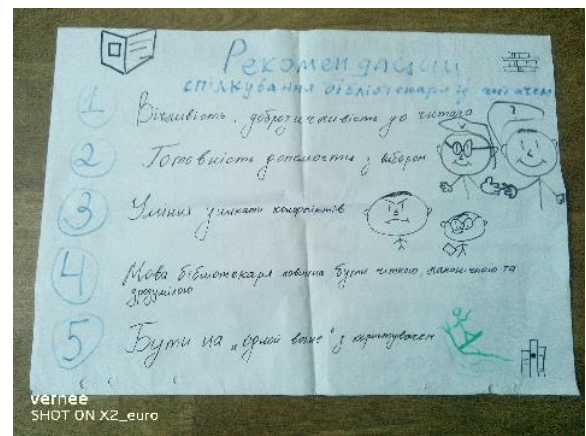 Рекомендации
спілкування бібліотекаря із читачем
1 Ввічливість, доброзичливість до читача
2 Готовність допомогти з вибором
?
3 Уміння уникати конфліктів
4 Мова бібліотекаря повинна бути чіткою, лаконічною та
зрозумілою
5 Бути на „одной волне" з користувачем
vernee
SHOT ON X2_euro